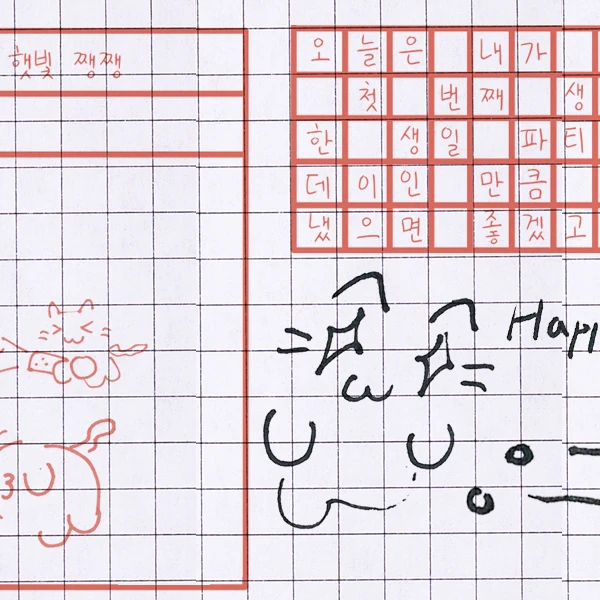 햇빛 쨍쨍
오늘은 내가
첫 번째 생
한 생일 파티
데이인 만큼
냈으면 좋겠고
Happ